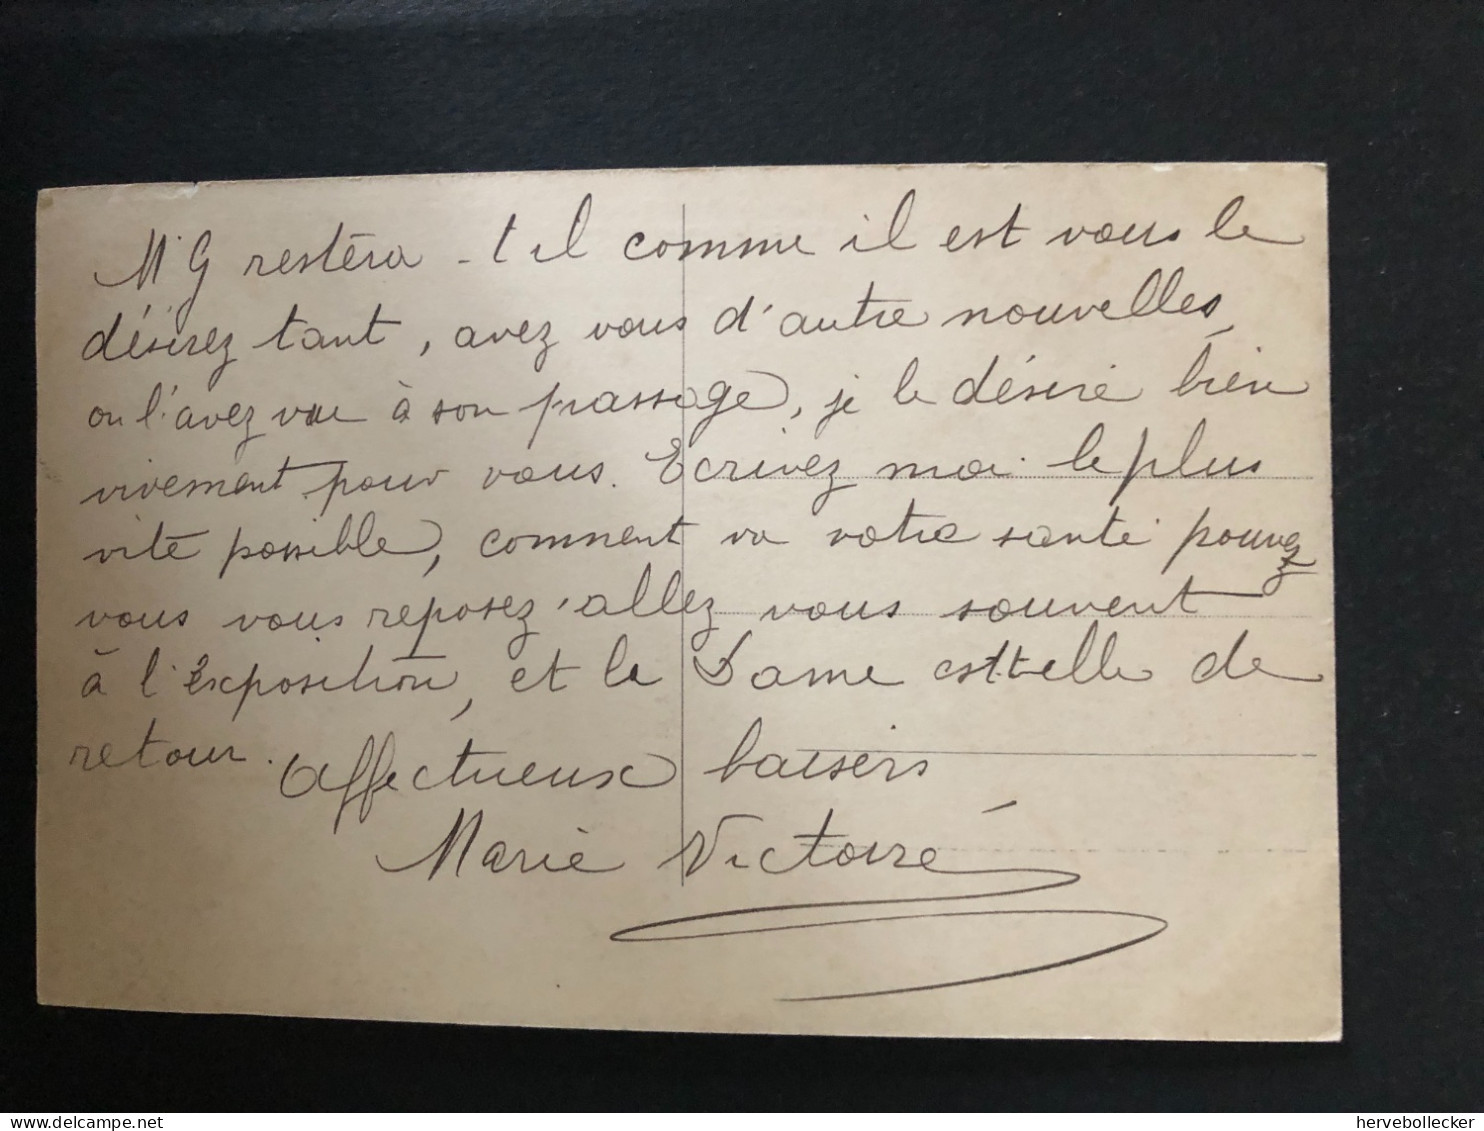 M. G restera - t il comme il est vous le
désirez tant, avez vous d'autre nouvelles
ou l'avez vue à son passage, je le désire bien
vivement pour vous. Ecrivez moi le plus
vite possible, comment va votre santé pouvez
vous vous reposez allez vous souvent
à l'Exposition, et la Dame est telle de
retour. Affectueux baisers
Marie Victoire
hervebollecker